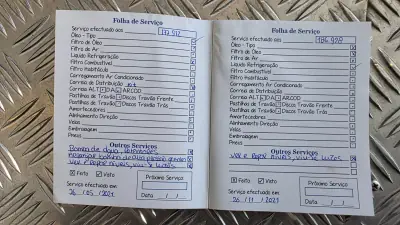 Folha de Serviço
Serviço efectuado aos
Óleo - Tipo
Filtro de Óleo
Filtro de Ar
Líquido Refrigeração
Filtro Combustível
Filtro Habitáculo
Carregamento Ar Condicionado
Correia de Distribuição
Correia ALT DA AR.COD
Pastilhas de Travão Discos Travão Frente
Pastilhas de Travão Discos Travão Trás
Amortecedores
Alinhamento Direção
Velas
Embraiagem
Pneus
Outros Serviços
Bomba de água,
Ver e Repor níveis, viu-se luzes
X Feito ✓ Visto
Serviço efectuado em:
26 / 05 / 2021
Próximo Serviço
Data / /
Folha de Serviço
Serviço efectuado aos 186 998
Óleo - Tipo
Filtro de Óleo
Filtro de Ar
Líquido Refrigeração
Filtro Combustível
Filtro Habitáculo
Carregamento Ar Condicionado
Correia de Distribuição
Correia ALT DA AR.COD
Pastilhas de Travão Discos Travão Frente
Pastilhas de Travão Discos Travão Trás
Amortecedores
Alinhamento Direção
Velas
Embraiagem
Pneus
Outros Serviços
Ver e Repor níveis, viu-se luzes
X Feito ✓ Visto
Serviço efectuado em:
26 / 11 / 2021
Próximo Serviço
Data / /